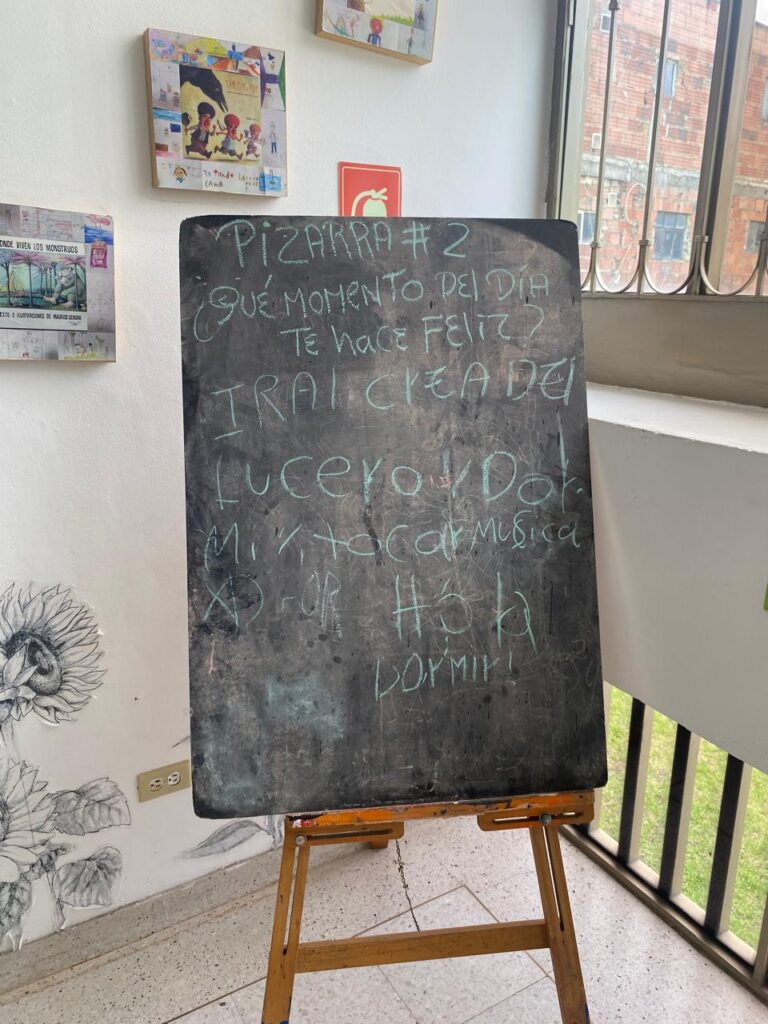 TEXTO E ILUSTRACIONES DE MAURICE SENDAK
DONDE VIVEN LOS MONSTRUOS
PIZARRA # 2
¿QUÉ MOMENTO DEL DÍA
TE hacE FELIZ?
IRAl CREA DEl
Lucero y Dor
Mir, tocar MUSica
XD
Hola
DORMIR